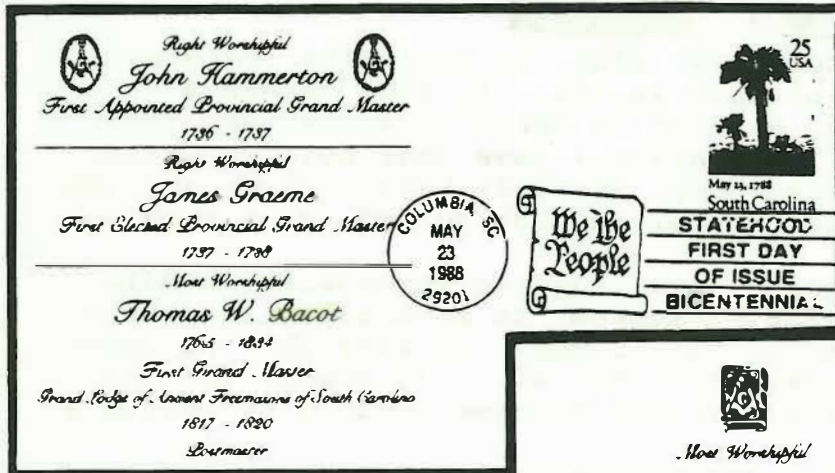 Right Worshipful
John Hammerton
First Appointed Provincial Grand Master
1736 - 1737
Right Worshipful
James Graeme
First Elected Provincial Grand Master
1737 - 1738
Most Worshipful
Thomas W. Bacot
1765 - 1834
First Grand Master
Grand Lodge of Ancient Freemasons of South Carolina
1817 - 1820
Postmaster
COLUMBIA, SC
MAY
23
1988
29201
We the
People
25
USA
May 23, 1788
South Carolina
STATEHOOD
FIRST DAY
OF ISSUE
BICENTENNIAL
Most Worshipful